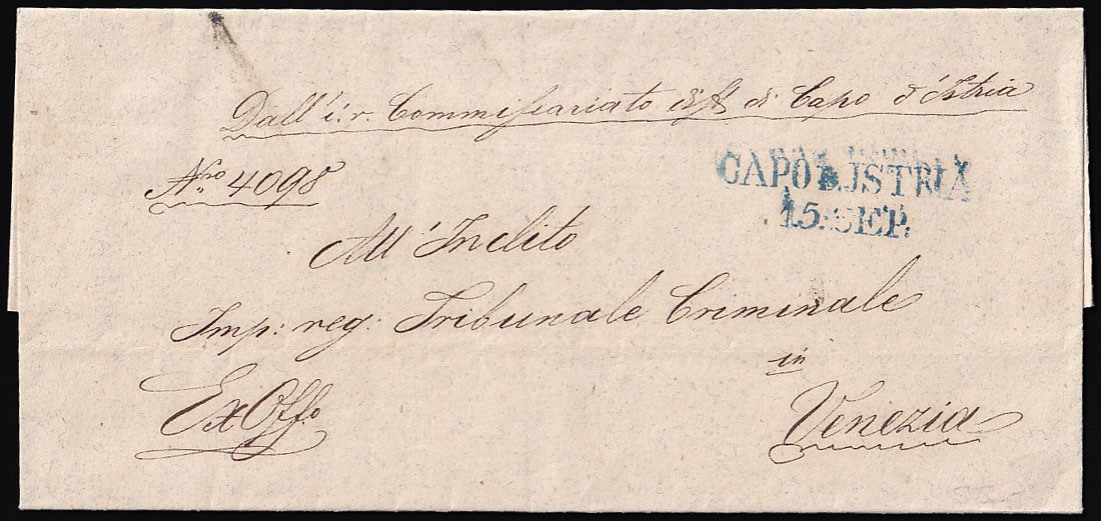 Dall' i: r. Commissariato di Capo d'Istria
Nro 4098
CAPO D'ISTRIA
15. SEP.
All' Inclito
Imp: reg: Tribunale Criminale
in
Ex Offo
Venezia